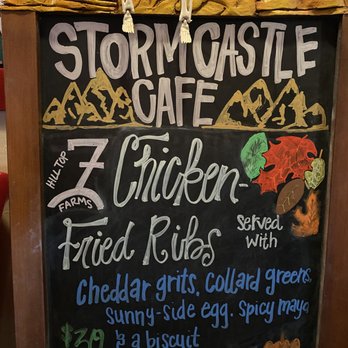 STORM CASTLE
CAFE
HILL TOP
7
FARMS
Chicken-
Fried Ribs
Served
with
Cheddar grits, collard greens,
sunny-side egg, spicy mayo
& a biscuit